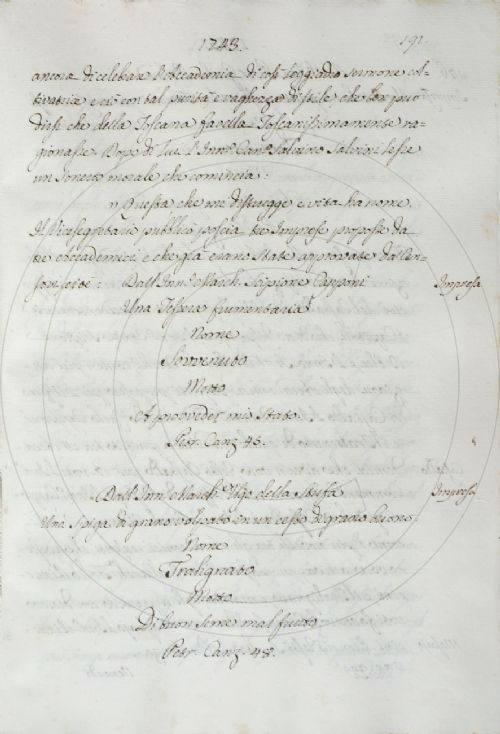 1743.
191.
ancora di celebrare l'Accademia di così leggiadro sermone col-
tivatrice e ciò con tal purità e vaghezza di stile che ben può
dirsi che della Toscana favella Toscanissimamente ra-
gionasse. Dopo di Lui l'Inn.º Can.º Salvino Salvini lesse
un Sonetto morale che comincia:
" Questa che me distrugge e vita ha nome.
Il Vicesegretario pubblicò poscia tre Imprese proposte da
tre Accademici e che già erano State approvate da Cen-
sori cioè Dall' Inn.º March. Scipione Capponi
Impresa
Una Tessera frumentaria
Nome
Sovvenuto
Motto
A provveder mio Stato.
Petr. Canz. 46.
Dall' Inn. March. Ugo della Stufa
Impresa
Una Spiga di grano in un cesto di grano buono
Nome
Tralignato
Motto
Di buon seme mal frutto
Petr. Canz. 48.